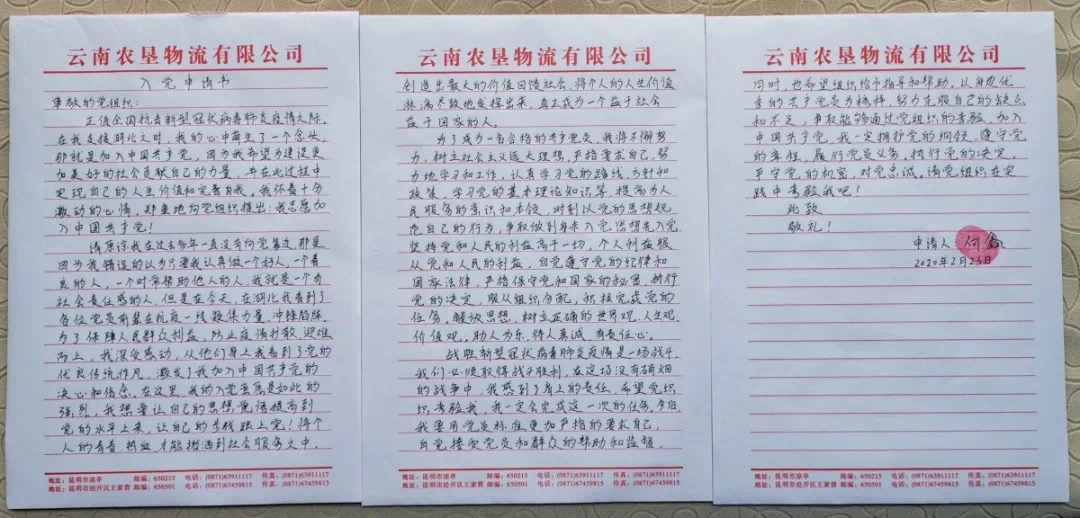 云南农垦物流有限公司
入党申请书
尊敬的党组织：
正值全国抗击新型冠状病毒肺炎疫情之际，
在我支援湖北之时，我的心中萌生了一个念头，
那就是加入中国共产党，因为我希望为建设更
加美好的社会贡献自己的力量，并在此过程中
实现自己的人生价值和完善自我。我怀着十分
激动的心情，郑重地向党组织提出：我志愿加
入中国共产党！
请原谅我在过去多年一直没有向党靠近，那是
因为我错误的以为只要我认真做一个好人，一个善
良的人，一个时常帮助他人的人，我就是一个为
社会负责任感的人，但是在今天，在湖北我看到了
各位党员前辈在抗疫一线凝集力量，冲锋陷阵，
为了保障人民群众利益，防止疫情扩散，迎难
而上，我深受感动，从他们身上我看到了党的
优良传统作风，激发了我加入中国共产党的
决心和信念。在这里，我的入党意愿是如此的
强烈，我想要让自己的思想觉悟提高到
党的水平上来，让自己的步伐跟上党！将个
人的青春、热血、才能挥洒到社会服务之中，
地址：昆明市凉亭 邮编：650215 电话：(0871)63911117 传真：(0871)63911117
地址：昆明市经开区王家营 邮编：650501 电话：(0871)67459815 传真：(0871)67459815
云南农垦物流有限公司
创造出最大的价值回馈社会，将个人的人生价值
淋漓尽致地发挥出来，真正成为一个益于社会
益于国家的人。
为了成为一名合格的共产党员，我将不懈努
力，树立社会主义远大理想，严格要求自己，努
力地学习和工作，认真学习党的路线、方针和
政策，学习党的基本理论知识等，提高为人
民服务的意识和本领，时刻以党的思想规
范自己的行为，争取做到身未入党思想先入党，
坚持党和人民的利益高于一切，个人利益服
从党和人民的利益，自觉遵守党的纪律和
国家法律，严格保守党和国家的秘密，执行
党的决定，服从组织分配，积极完成党的
任务，锻炼思想，树立正确的世界观、人生观、
价值观，助人为乐，待人真诚，有责任心。
战胜新型冠状病毒肺炎疫情是一场战斗，
我们必须取得战斗胜利，在这场没有硝烟
的战争中，我感到了肩上的责任，希望党组
织考验我，我一定会完成这一次的任务。今后，
我要用党员标准更加严格的要求自己，
自觉接受党员和群众的帮助和监督，
地址：昆明市凉亭 邮编：650215 电话：(0871)63911117 传真：(0871)63911117
地址：昆明市经开区王家营 邮编：650501 电话：(0871)67459815 传真：(0871)67459815
云南农垦物流有限公司
同时，也希望组织给予指导和帮助。以身边优
秀的共产党员为榜样，努力克服自己的缺点
和不足，争取能够通过党组织的考验，加入
中国共产党，我一定拥护党的纲领，遵守党
的章程，履行党员义务，执行党的决定，
严守党的机密，对党忠诚，请党组织在实
践中考验我吧！
此致
敬礼！
申请人：何鑫
2020年2月23日
地址：昆明市凉亭 邮编：650215 电话：(0871)63911117 传真：(0871)63911117
地址：昆明市经开区王家营 邮编：650501 电话：(0871)67459815 传真：(0871)67459815